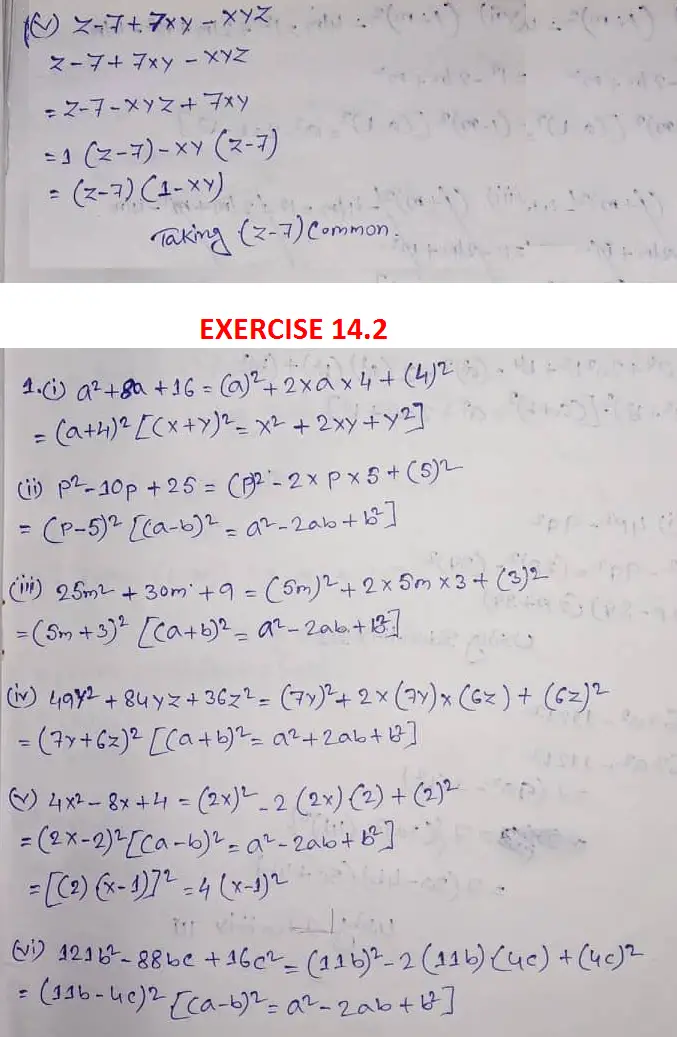 (v) z-7+7xy-xyz
z-7+7xy-xyz
=z-7-xyz+7xy
=1(z-7)-xy(z-7)
=(z-7)(1-xy)
Taking (z-7) Common.
EXERCISE 14.2
1.(i) a²+8a+16=(a)²+2×a×4+(4)²
=(a+4)²[(x+y)²=x²+2xy+y²]
(ii) p²-10p+25=(p)²-2×p×5+(5)²
=(p-5)² [(a-b)²=a²-2ab+b²]
(iii) 25m²+30m+9=(5m)²+2×5m×3+(3)²
=(5m+3)² [(a+b)²=a²-2ab+b²]
(iv) 49y²+84yz+36z²=(7y)²+2×(7y)×(6z)+(6z)²
=(7y+6z)² [(a+b)²=a²+2ab+b²]
(v) 4x²-8x+4=(2x)²-2(2x)(2)+(2)²
=(2x-2)²[(a-b)²=a²-2ab+b²]
=[(2)(x-1)]²=4(x-1)²
(vi) 121b²-88bc+16c²=(11b)²-2(11b)(4c)+(4c)²
=(11b-4c)² [(a-b)²=a²-2ab+b²]